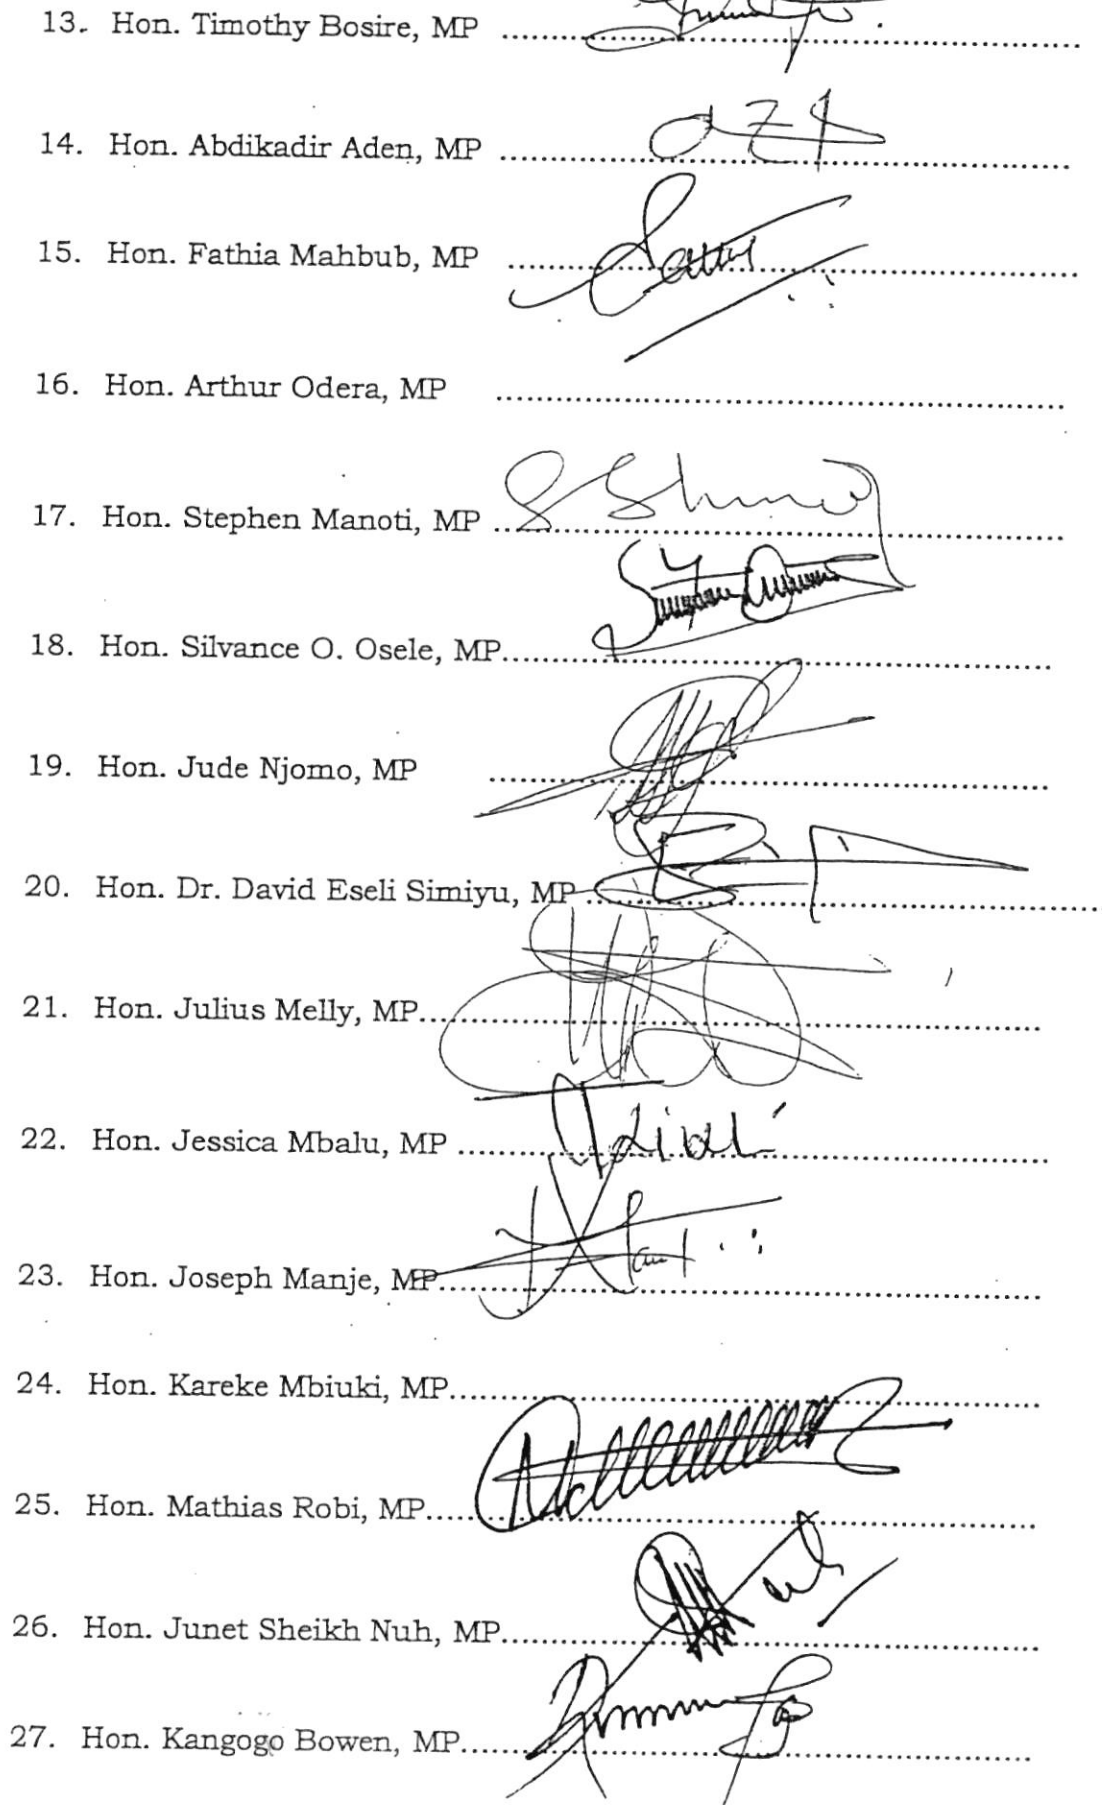 13. Hon. Timothy Bosire, MP ..........
14. Hon. Abdikadir Aden, MP ..........
15. Hon. Fathia Mahbub, MP ..........
16. Hon. Arthur Odera, MP ..........
17. Hon. Stephen Manoti, MP ..........
18. Hon. Silvance O. Osele, MP ..........
19. Hon. Jude Njomo, MP ..........
20. Hon. Dr. David Eseli Simiyu, MP ..........
21. Hon. Julius Melly, MP ..........
22. Hon. Jessica Mbalu, MP ..........
23. Hon. Joseph Manje, MP ..........
24. Hon. Kareke Mbiuki, MP ..........
25. Hon. Mathias Robi, MP ..........
26. Hon. Junet Sheikh Nuh, MP ..........
27. Hon. Kangogo Bowen, MP ..........